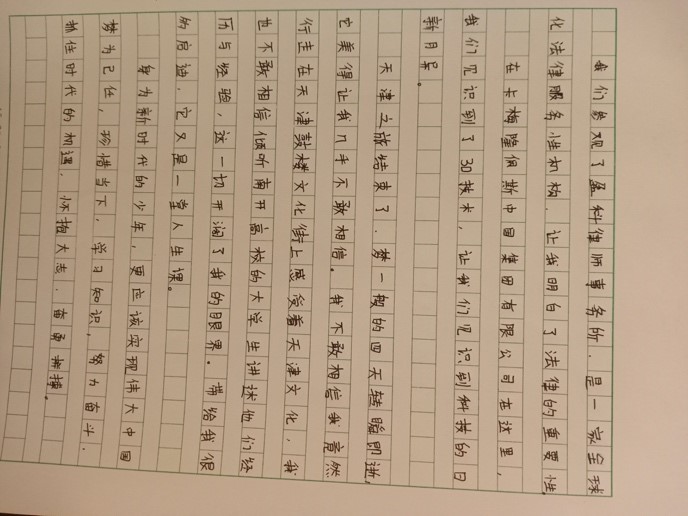 我们参观了盈科律师事务所,是一家全球
化法律服务性机构,让我明白了法律的重要性
在卡梅隆佩斯中国集团有限公司在这里,
我们见识到了3D技术,让我们见识到科技的日
新月异。
天津之旅结束了,梦一般的四天转瞬即逝,
它美得让我几乎不敢相信。我不敢相信我竟然
行走在天津鼓楼文化街上感受着天津文化,我
也不敢相信倾听南开高校的大学生讲述他们经
历与经验,这一切开阔了我的眼界。带给我很
的启迪,它又是一堂人生课。
身为新时代的少年,更应该实现伟大中国
梦为己任,珍惜当下,学习知识,努力奋斗,
抓住时代的机遇,怀抱大志,奋勇拼搏。